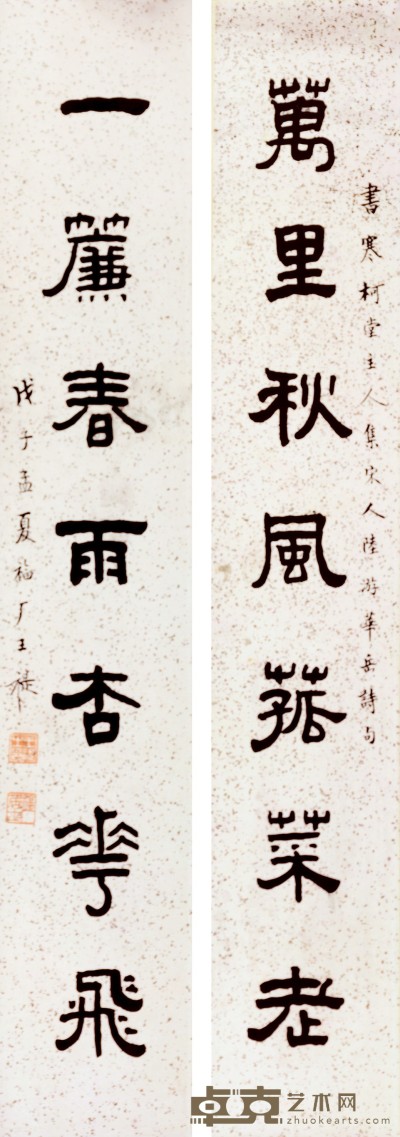 萬里秋風菰菜老
書寒柯堂主人集宋人陸游華岳詩句
一簾春雨杏花飛
戊子孟夏福厂王禔
卓克艺术网
zhuokearts.com